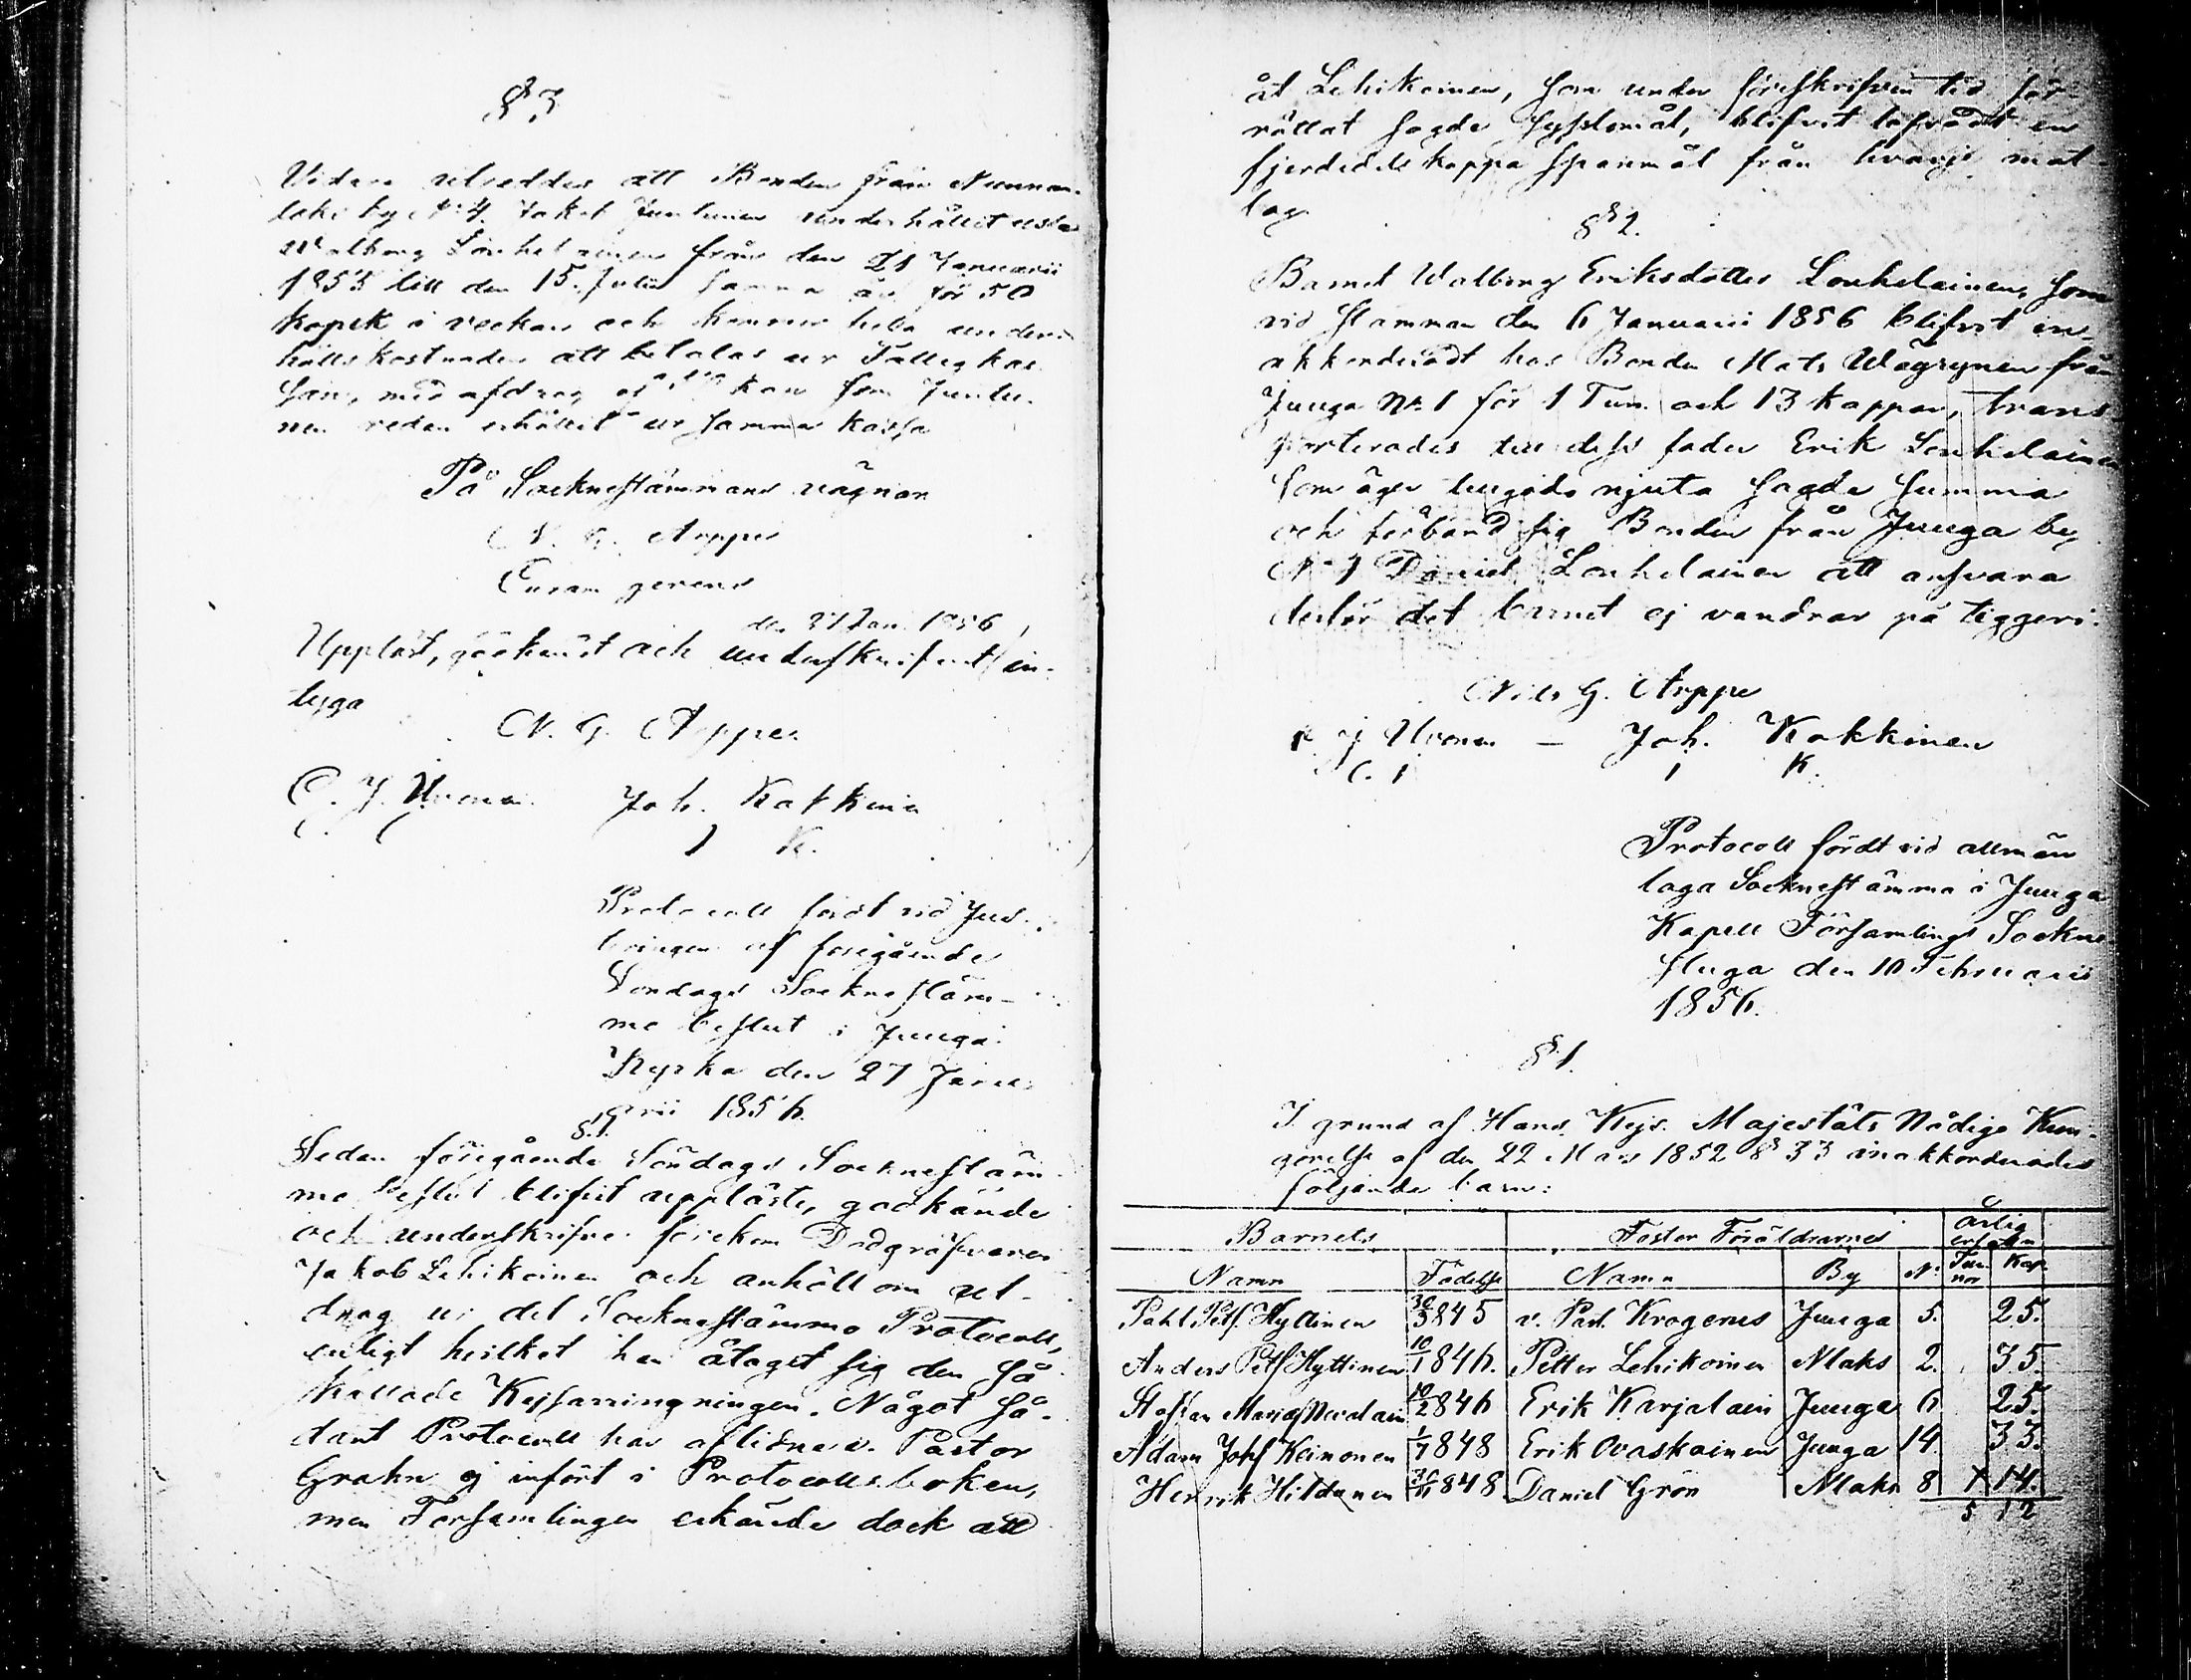 § 3
Vidare utreddes att Bonden från Nunnan-
laks by N:o 4. Jakob Juntunen underhållit
Walborg Lonkelainen från den 21 Januarii
1855 till den 15. Julii samma år för 50
kopek i veckan och kommer hela under-
hållskostnaden att betalas ur Fattigkas-
san, med afdrag af kan som Juntu-
nen redan erhållit ur samma kassa
På Socknestämmans vägnar
N. G. Arppe
Curam gerens
den 27 Jan. 1856
Uppläst, godkändt och underskrifvit, in-
tyga
N. G. Arppe.
C. J. Uronen. Joh. Kokkinen
C. J K.
Protocoll fördt vid Jus-
teringen af föregående
Söndags Socknestäm-
mo beslut i Juuga
Kyrka den 27 Janu-
arii 1856.
§.1.
Sedan föregående Söndags Socknestäm-
mo beslut blifvit uppläste, godkände
och underskrifne. förekom Dödgräfvaren
Jakob Lehikoinen och anhöll om ut-
drag ur det Socknestämmo Protocoll,
enligt hvilket han åtagit sig den så
kallade Kejsarringningen. Något så-
dant Protocoll har aflidne v. Pastor
Grahn ej infört i Protocollsboken,
men Församlingen erkände dock att
åt Lehikoinen, som under föreskrifven tid för-
rättat sagde sysslomål, blifvit lofvadt en
fjerdedels kappa spanmål från hvarje mat-
lag
§ 2.
Barnet Walborg Eriksdotter Lonkelainen, som
vid stämman den 6 Januarii 1856 blifvit in-
akkorderadt hos Bonden Mats Wäyrynen från
Juuga No. 1 för 1 Tun. och 13 kappar, trans-
porterades till dess fader Erik Lonkelainen
som äger tugods njuta sagde summa
och förband sig Bonden från Juuga by
N:o 1 Daniel Lonkelainen att ansvara
derför det barnet ej vandrar på tiggeri.
Nils G. Arppe
C J Uronen – Joh. Kokkinen
C. J J K.
Protocoll fördt vid allmän
laga Socknestämma i Juuga
Kapell Församlings Sockne
stuga den 10 Februarii
1856.
§ 1.
I grund af Hans Kejs. Majestäts Nådige Kun-
görelse af den 22 Mars 1852 § 33 inakkorderades
följande barn:
Barnets Foster Föräldrarnes Årlig
ersättn
Namn Födelse Namn By No Tun
nor Kap
Pahl Pets. Hyttinen 30/3 845 v. Past. Krogerus Juuga 5. 25.
Anders Pets Hyttinen 10/1 846. Petter Lehikoinen Maks 2. 35.
Staffan Marias Nevalain 10/2 846 Erik Karjalain Juuga 6 25.
Adam Johs Keinonen 1/7 848 Erik Ovaskainen Juuga 14. 33.
Henrik Hildunen 848 Daniel Grön Maks 8 1 14.
5 12